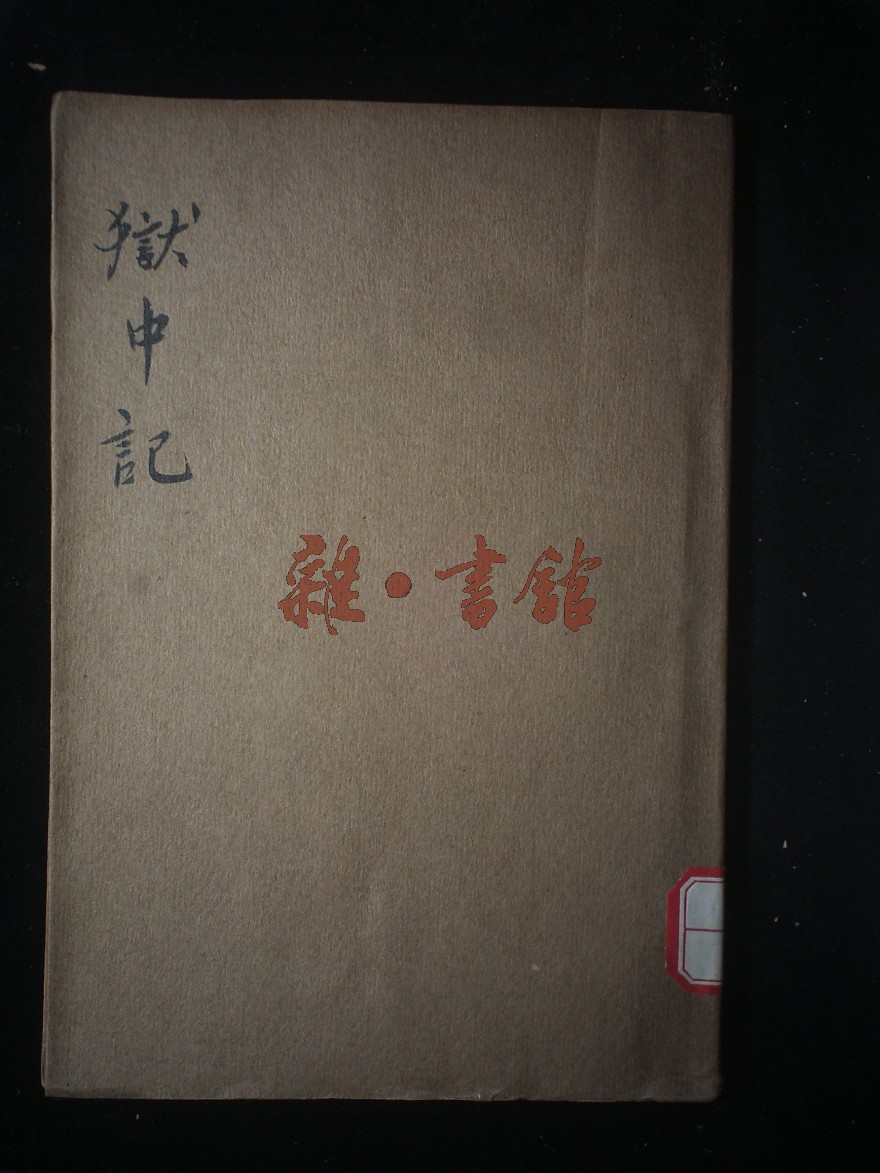 獄中記
雜·書館